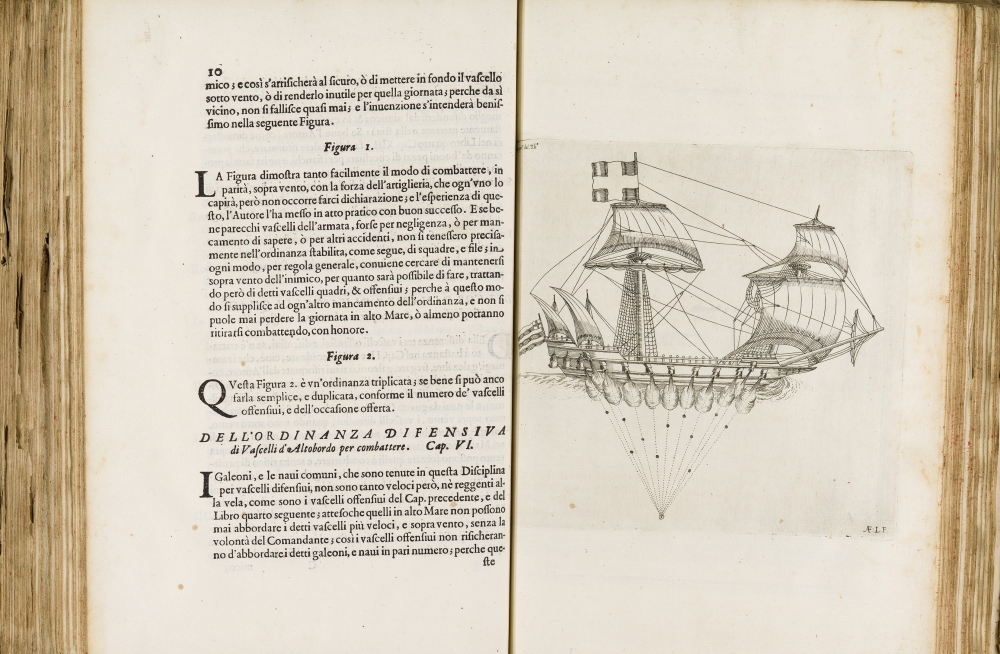 10
mico; e così s'arrisicherà al sicuro, ò di mettere in fondo il vaſcello
sotto vento, ò di renderlo inutile per quella giornata; perche da sì
vicino, non ſi falliſce quaſi mai; e l'inuenzione s'intenderà beniſ-
ſimo nella seguente Figura.
Figura 1.
LA Figura dimoſtra tanto facilmente il modo di combattere, in
parità, sopra vento, con la forza dell'artiglieria, che ogn'vno lo
capirà, però non occorre farci dichiarazione; e l'eſperienza di que-
ſto, l'Autore l'ha meſſo in atto pratico con buon ſucceſſo. E se be-
ne parecchi vaſcelli dell'armata, forſe per negligenza, ò per man-
camento di sapere, ò per altri accidenti, non ſi teneſſero preciſa-
mente nell'ordinanza ſtabilita, come segue, di squadre, e file; in
ogni modo, per regola generale, conuiene cercare di mantenerſi
sopra vento dell'inimico, per quanto sarà poſſibile di fare, trattan-
do però di detti vaſcelli quadri, & offenſiui; perche à queſto mo-
do ſi suppliſce ad ogn'altro mancamento dell'ordinanza, e non ſi
puole mai perdere la giornata in alto Mare, ò almeno potranno
ritirarſi combattendo, con honore.
Figura 2.
QVeſta Figura 2. è vn'ordinanza triplicata; se bene ſi può anco
farla semplice, e duplicata, conforme il numero de' vaſcelli
offenſiui, e dell'occaſione offerta.
DELL'ORDINANZA DIFENSIVA
di Vaſcelli d'Altobordo per combattere. Cap. VI.
I Galeoni, e le naui comuni, che sono tenute in queſta Diſciplina
per vaſcelli difenſiui, non sono tanto veloci però, nè reggenti al-
la vela, come sono i vaſcelli offenſiui del Cap. precedente, e del
Libro quarto seguente; atteſoche quelli in alto Mare non poſſono
mai abbordare i detti vaſcelli più veloci, e sopra vento, senza la
volontà del Comandante; così i vaſcelli offenſiui non riſicheran-
no d'abbordare i detti galeoni, e naui in pari numero; perche que-
ſte
Æ L F